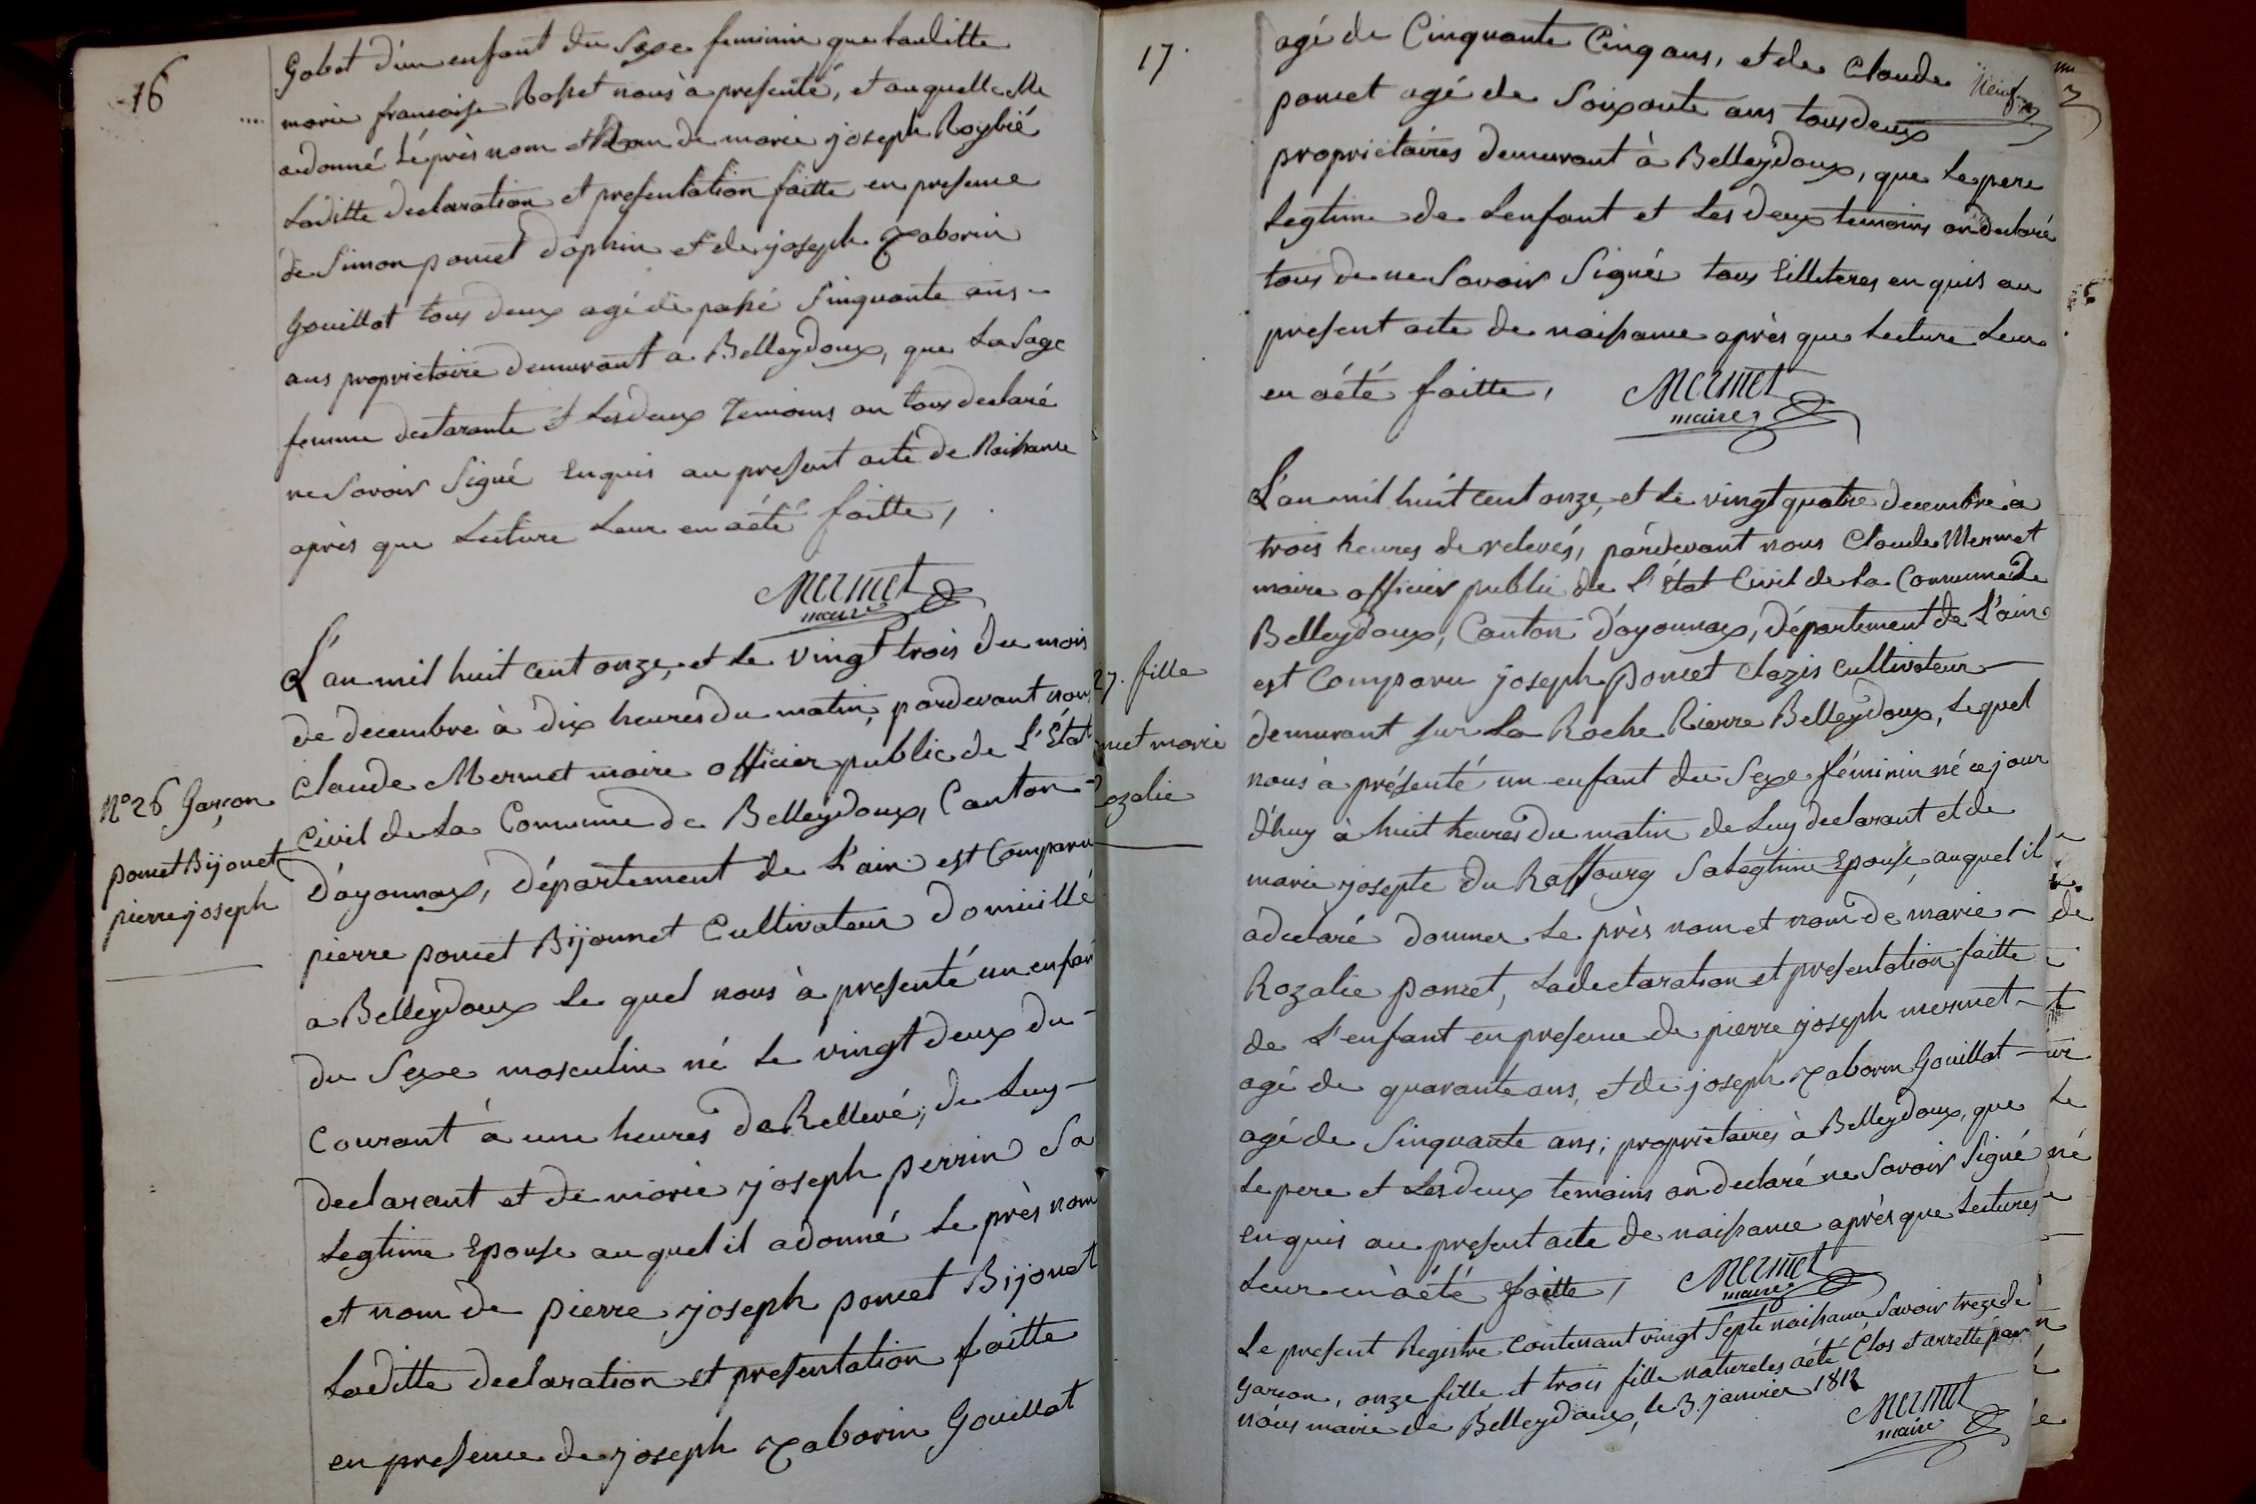 16
Gobet d'un enfant du Sexe feminin que laulitte
marie francoise Rosset nous à presenté, et auquelle elle
adonné Lé près nom et Nom de marie joseph Roybié
Laditte declaration et presentation faitte en presence
de Simon poncet dophin et de joseph Taborin
Gouillot tous deux agé de passé Sinquante ans
ans proprietaire demurant a Belleydoux, que La Sage
femme declarante et Les deux Temoins on tous declaré
ne Savoir Signé Enquis au present acte de Naissance
après que Lecture Leur en aété faitte,
Mermet
maire
N° 26 Garçon
poncet Bijouet
pierre joseph
L'an mil huit cent onze, et Le vingt trois du mois
de decembre à dix heures du matin, pardevant nous
Claude Mermet maire officier public de L'État
Civil de La Commune de Belleydoux, Canton
d'oyonnax, département de L'ain est Comparu
pierre poncet Bijonnet Cultivateur domicillé
a Belleydoux Le quel nous à presenté un enfan
du Sexe masculin né Le vingt deux du
Courant à une heures de Rellevé, de Luy
declarant et de marie joseph perrin Sa
Legtime Epouse auquel il adonné Le près nom
et nom de pierre joseph poncet Bijouet
Laditte declaration et presentation faitte
en presence de joseph Taborin Gouillot
17.
agé de Cinquante Cinq ans, et de Claude
Neuf
poncet agé de Soixante ans tous deux
proprietaires demurant à Belleydoux, que Le pere
Legtime de Lenfant et Les deux temoins on declaré
tous de ne Savoir Signér tous Lilliteres enquis au
present acte de naissance après que Lecture Leur
en aété faitte,
Mermet
maire
27. fille
ncet marie
ozalie
L'an mil huit cent onze, et Le vingt quatre decembre à
trois heures de relevés, pardevant nous Claude Mermet
maire officier public de L'État Civil de La Commune de
Belleydoux, Canton d'oyonnax, département de L'ain
est Comparu joseph poncet Clazis Cultivateur
demurant sur La Roche Rierre Belleydoux, Lequel
nous à présenté un enfant du Sexe féminin né ce jour
d'huy à huit heures du matin de Luy declarant et de
marie josepte du Raffourg Sa Legtime Epouse, auquel il
adeclaré donner Le près nom et nom de marie
Rozalie poncet, La declaration et presentation faitte
de L'enfant en presence de pierre joseph mermet
agé de quarante ans, et de joseph Taborin Gouillat
agé de Sinquante ans; proprietaires à Belleydoux, que
Le pere et Les deux temoins on declaré ne Savoir Signé
enquis au present acte de naissance après que Lectures
Leur en à été faitte,
Mermet
maire
Le present Registre Contenant vingt Septe naissance Savoir treze de
Garcon, onze fille et trois fille natureles aété Clos et arretté par
nous maire de Belleydoux, le 3. janvier 1812
Mermet
maire